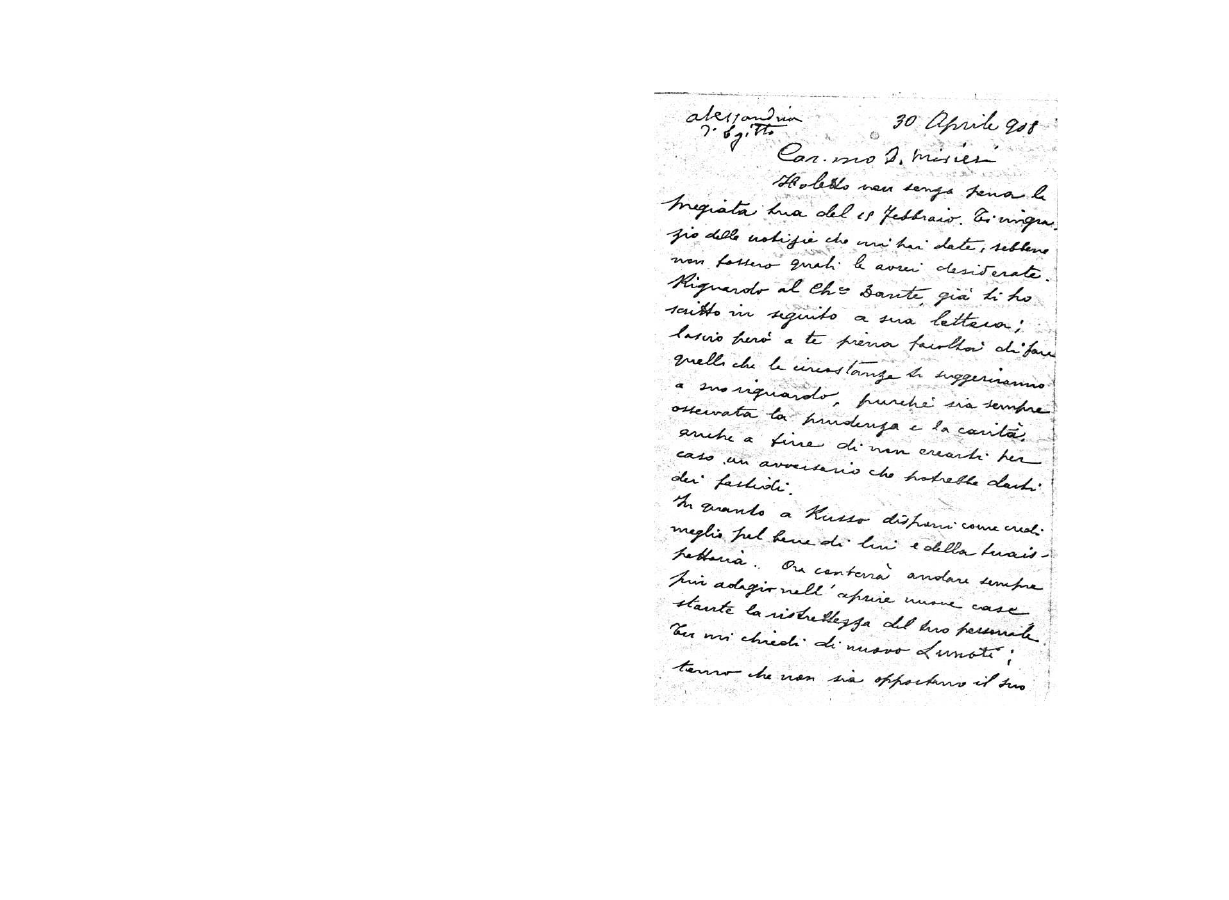 Alessandria 30 Aprile 908
d'Egitto
Car.mo D. Misieri
Ho letto non senza pena la
pregiata tua del 18 Febbraio. Ti ringra-
zio delle notizie che mi hai date, sebbene
non fossero quali le avrei desiderate.
Riguardo al Ch.co Dante, già ti ho
scritto in seguito a sua lettera;
lascio però a te piena facoltà di fare
quello che le circostanze ti suggeriranno
a suo riguardo, purchè sia sempre
osservata la prudenza e la carità,
anche a fine di non crearti per
caso un avversario che potrebbe darti
dei fastidi.
In quanto a Russo disponi come credi
meglio pel bene di lui e della tua is-
pettoria. Ora converrà andare sempre
più adagio nell'aprire nuove case
stante la ristrettezza del tuo personale.
Tu mi chiedi di nuovo Lunati;
temo che non sia opportuno il suo